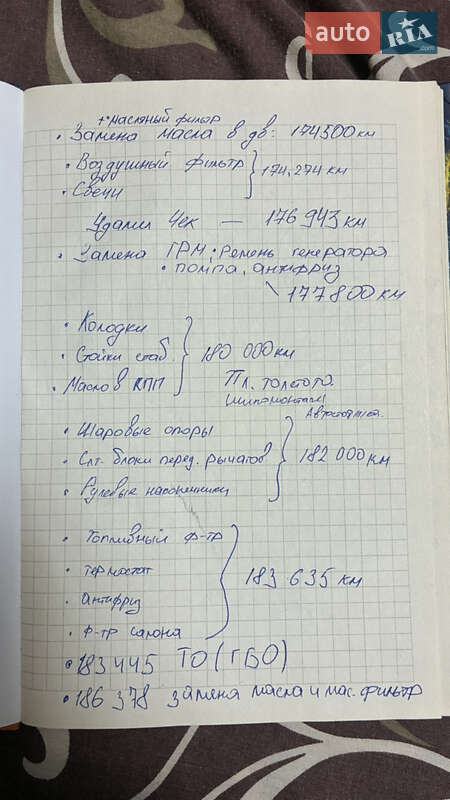 auto RIA .com
+ масляный фильтр
• Замена масла в дв: 174500 км
• Воздушный фильтр
• Свечи
174.274 км
Удалил Чек — 176943 км
• Замена ГРМ • Ремень генератора
• помпа, антифриз
177800 км
• Колодки
• Стойки стаб.
• Масло в КПП
180 000 км
Пл. толстого.
(шиномонтаж)
• Шаровые опоры
• Сал. блоки перед. рычагов
• Рулевые наконечники
182 000 км
• Топливный ф-тр
• термостат
• антифриз
• Ф-тр салона
183 635 км
• 183445 ТО (ГБО)
• 186 378 замена масла и мас. фильтр